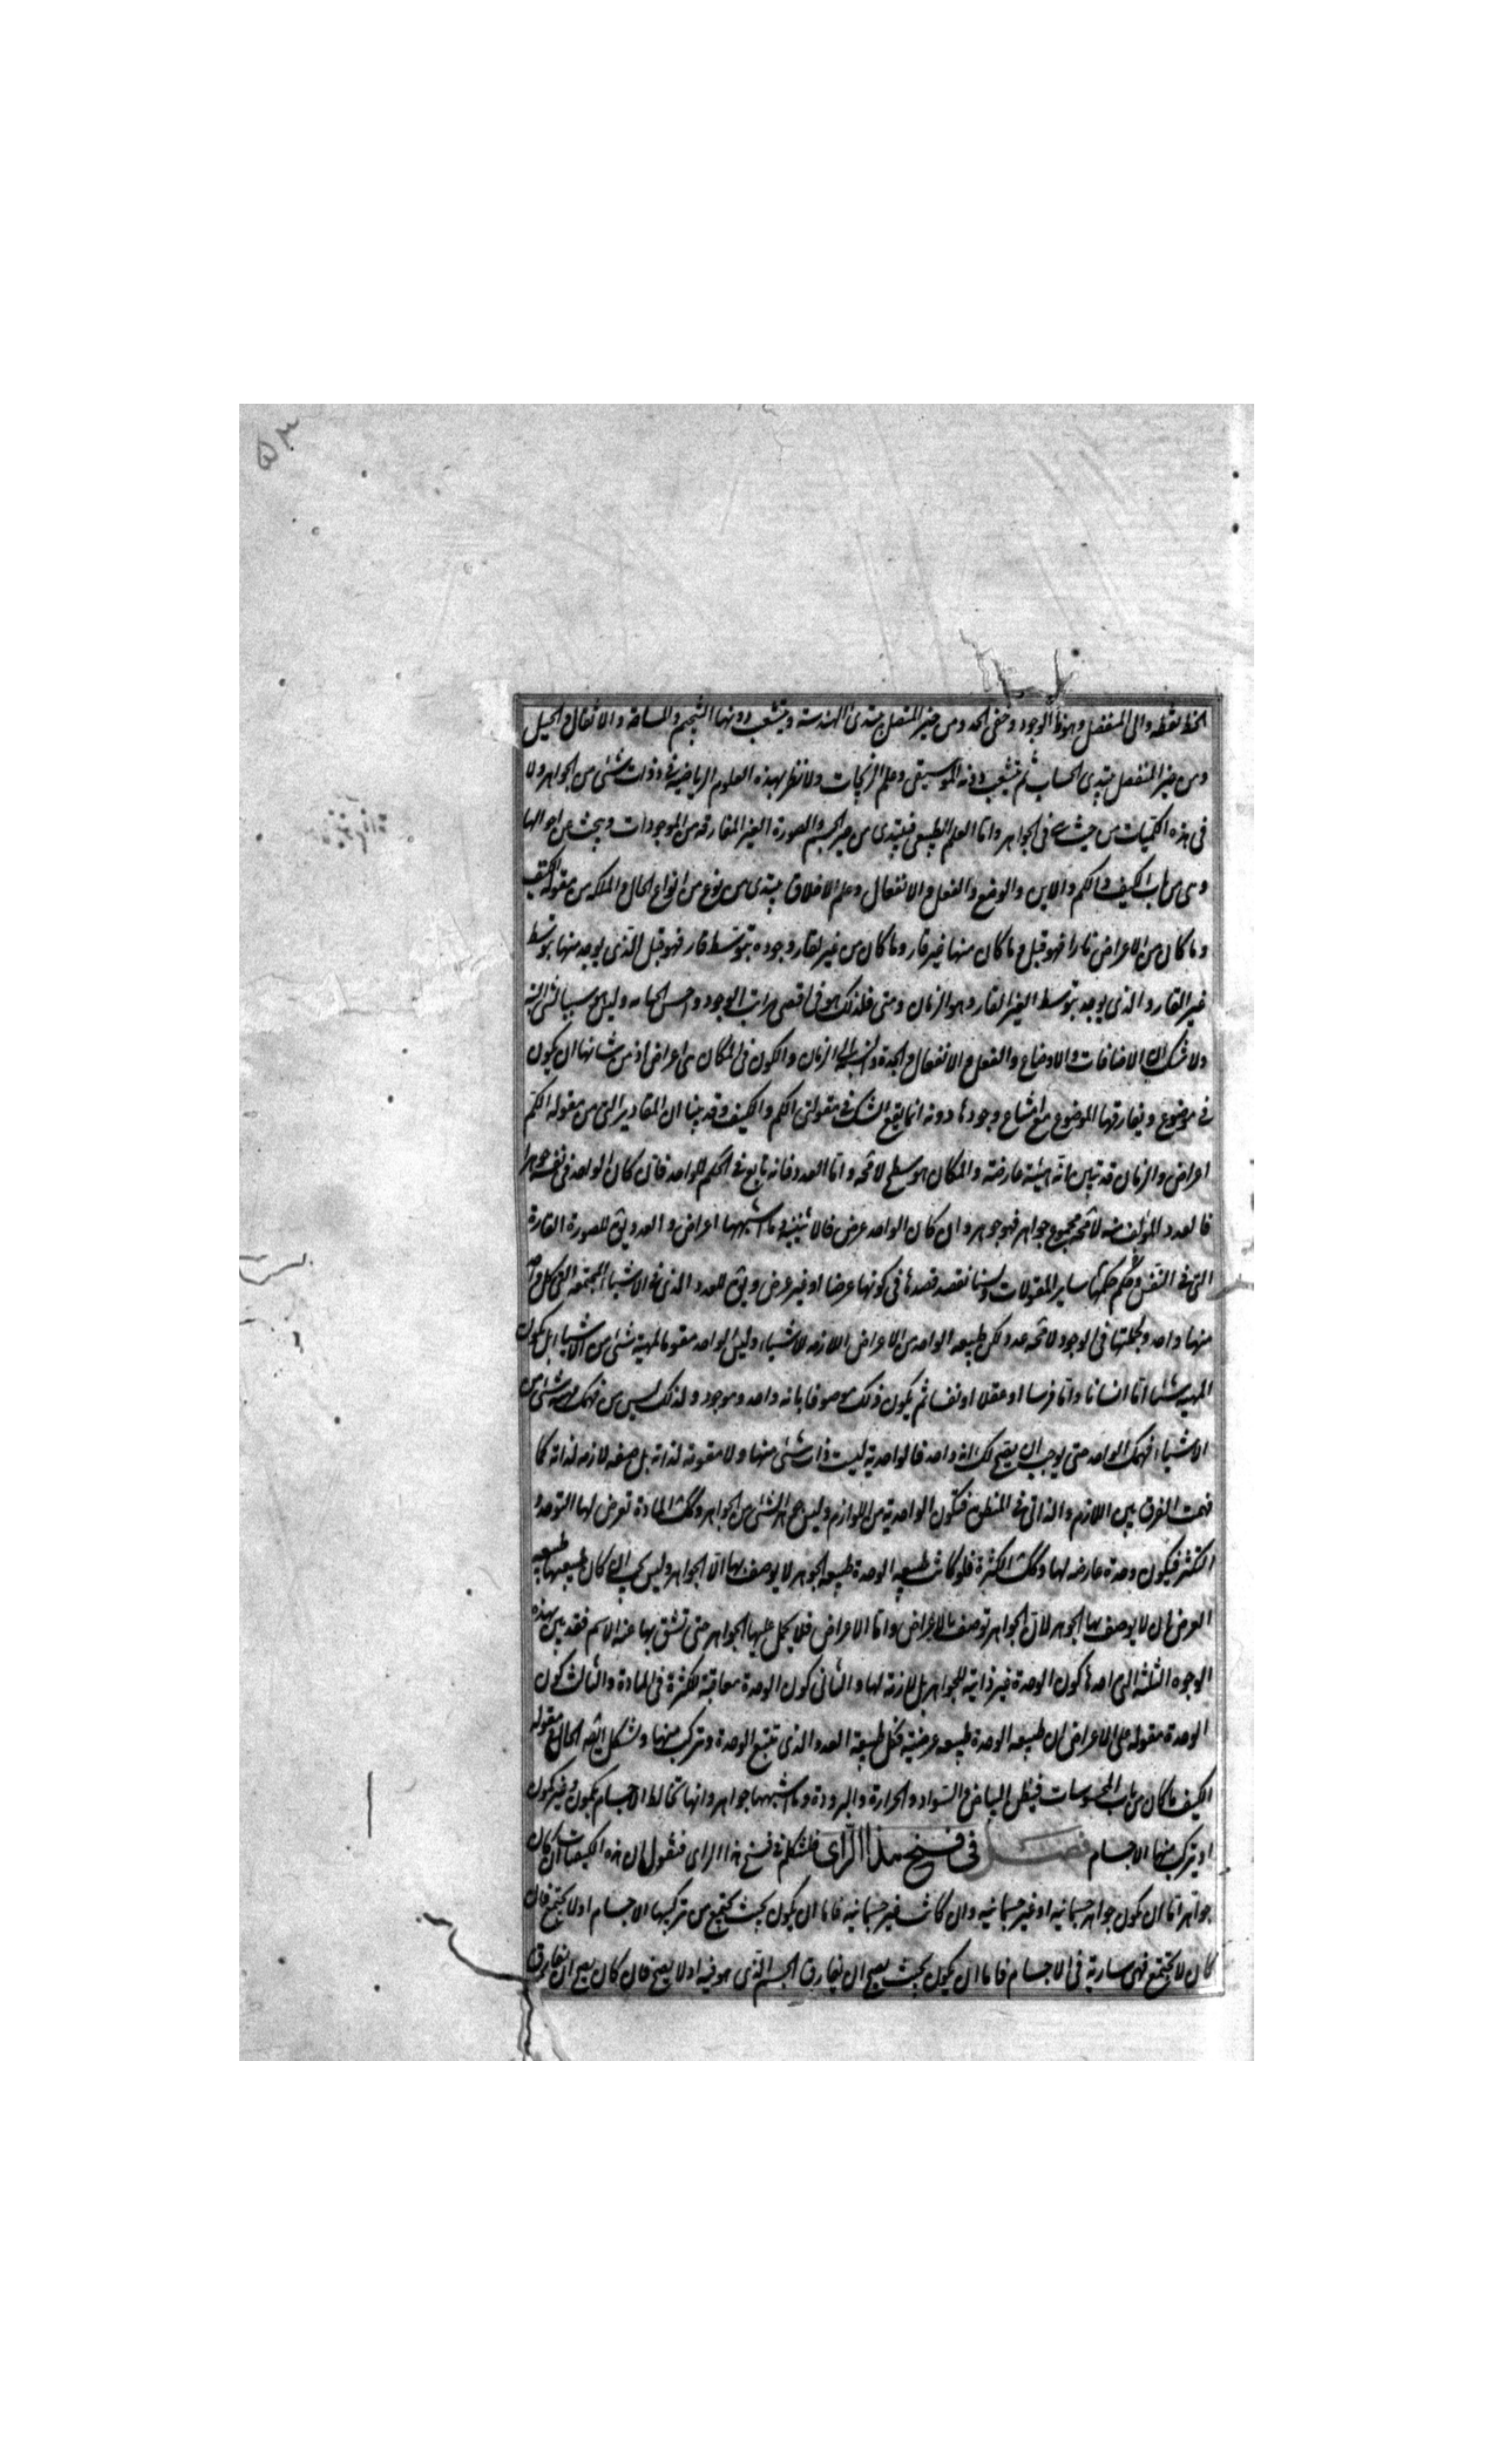 ۵۳
الخط نقطه والى المنفصل وهو ظ الوجود وخفى الحد ومن حيز المتصل يبتدى الهندسة ويتشعب دونها التنجيم والمساحة والاثقال والحيل
ومن حيز المنفصل يبتدى الحساب ثم يتشعب دونه الموسيقى وعلم الزيجات ولا نظر لهذه العلوم الرياضية فى ذوات شئى من الجواهر ولا
فى هذه الكميات من حيث هى فى الجواهر واما العلم الطبيعى فيبتدى من حيز الجسم والصورة الغير المفارقة من الموجودات ويبحث عن احوالها
وهى من باب الكيف والكم والاين والوضع والفعل والانفعال وعلم الاخلاق يبتدى من نوع من انواع الحال والملكه من مقوله الكيف
وما كان من الاعراض قارا فهو قبل ما كان منها غير قار وما كان من غير القار وجوده بتوسط قار فهو قبل الذى يوجد منها بتوسط
غير القار والذى يوجد بتوسط الغير القار وهو الزمان ومتى فلذلك هو فى اقصى مراتب الوجود واخس انحائه وليس هو سببا لشئ البتة
ولا شك ان الاضافات والاوضاع والفعل والانفعال والجدة والنسبة الى الزمان والكون فى المكان هى اعراض اذ من شانها ان يكون
فى موضوع ويفارقها الموضوع مع امتناع وجودها دونه انما يقع الشك فى مقولتى الكم والكيف وقد بينا ان المقادير التى من مقوله الكم
اعراض والزمان قد تبين انه هيئة عارضة والمكان هو سطح لا محه واما العدد فانه تابع فى الحكم للواحد فان كان الواحد فى نفسه جوهرا
فالعدد المؤلف منه لا محه مجموع جواهر فهو جوهر وان كان الواحد عرض فالاثنينية وما اشبهها اعراض والعدد يق للصورة القارة
التى فى النفس وحكم حكمها ساير المقولات ولسنا نقصد قصدها فى كونها عرضا او غير عرض ويق للعدد الذى فى الاشياء المجتمعه التى كل واحد
منها واحد ولجملتها فى الوجود لا محه عدد لكن طبيعه الواحد من الاعراض اللازمه للاشياء وليس الواحد مقوما لمهية شئى من الاشياء بل يكون
المهيه شئيا اما انسانا واما فرسا او عقلا او نفسا ثم يكون ذلك موصوفا بانه واحد وموجود ولذلك ليس من فهمك مهيه شئى من
الاشياء فهمك الواحد حتى يوجب ان يصح لك انه واحد فالواحدية ليست ذات شئى منها ولا مقومة لذاته بل صفه لازمه لذاته كما
فهمت الفرق بين اللازم والذاتى فى المنطق فتكون الواحدية من اللوازم وليس جوهرا لشئى من الجواهر وكك المادة تعرض لها التوحد و
التكثر فيكون وحدة عارضه لها وكك الكثرة فلو كانت طبيعه الوحدة طبيعه الجوهر لا يوصف بها الا الجواهر وليس يجب ان كان طبيعتها طبيعه
العرض ان لا يوصف بها الجوهر لان الجواهر توصف بالاعراض واما الاعراض فلا يحمل عليها الجواهر حتى تشتق بها عنه الاسم فقد بين بهذه
الوجوه الثلثه التى احدها كون الوحدة غير ذاتية للجواهر بل لازمة لها والثانى كون الوحدة معاقبة للكثرة فى المادة والثالث كون
الوحدة مقوله على الاعراض ان طبيعه الوحدة طبيعه عرضية فكك طبيعة العدد الذى تتبع الوحدة وتركب منها ولشكل ايضه الحال مقوله
الكيف ما كان من باب المحسوسات فيظن البياض والسواد والحرارة والبرودة وما اشبهها جواهر وانها تخالط الاجسام بكمون وغير كمون
او يتركب منها الاجسام فصل فى فسخ هذا الراى فلنتكلم فى فسخ هذا الراى فنقول ان هذه الكيفيات ان كان
جواهر اما ان يكون جواهر جسمانيه او غير جسمانيه وان كانت غير جسمانيه فاما ان يكون بحيث يجتمع من تركيبها الاجسام او لا يجتمع فان
كان لا يجتمع فهى سارية فى الاجسام فاما ان يكون بحيث يصح ان يفارق الجسم الذى هو فيه او لا يصح فان كان يصح ان يفارق